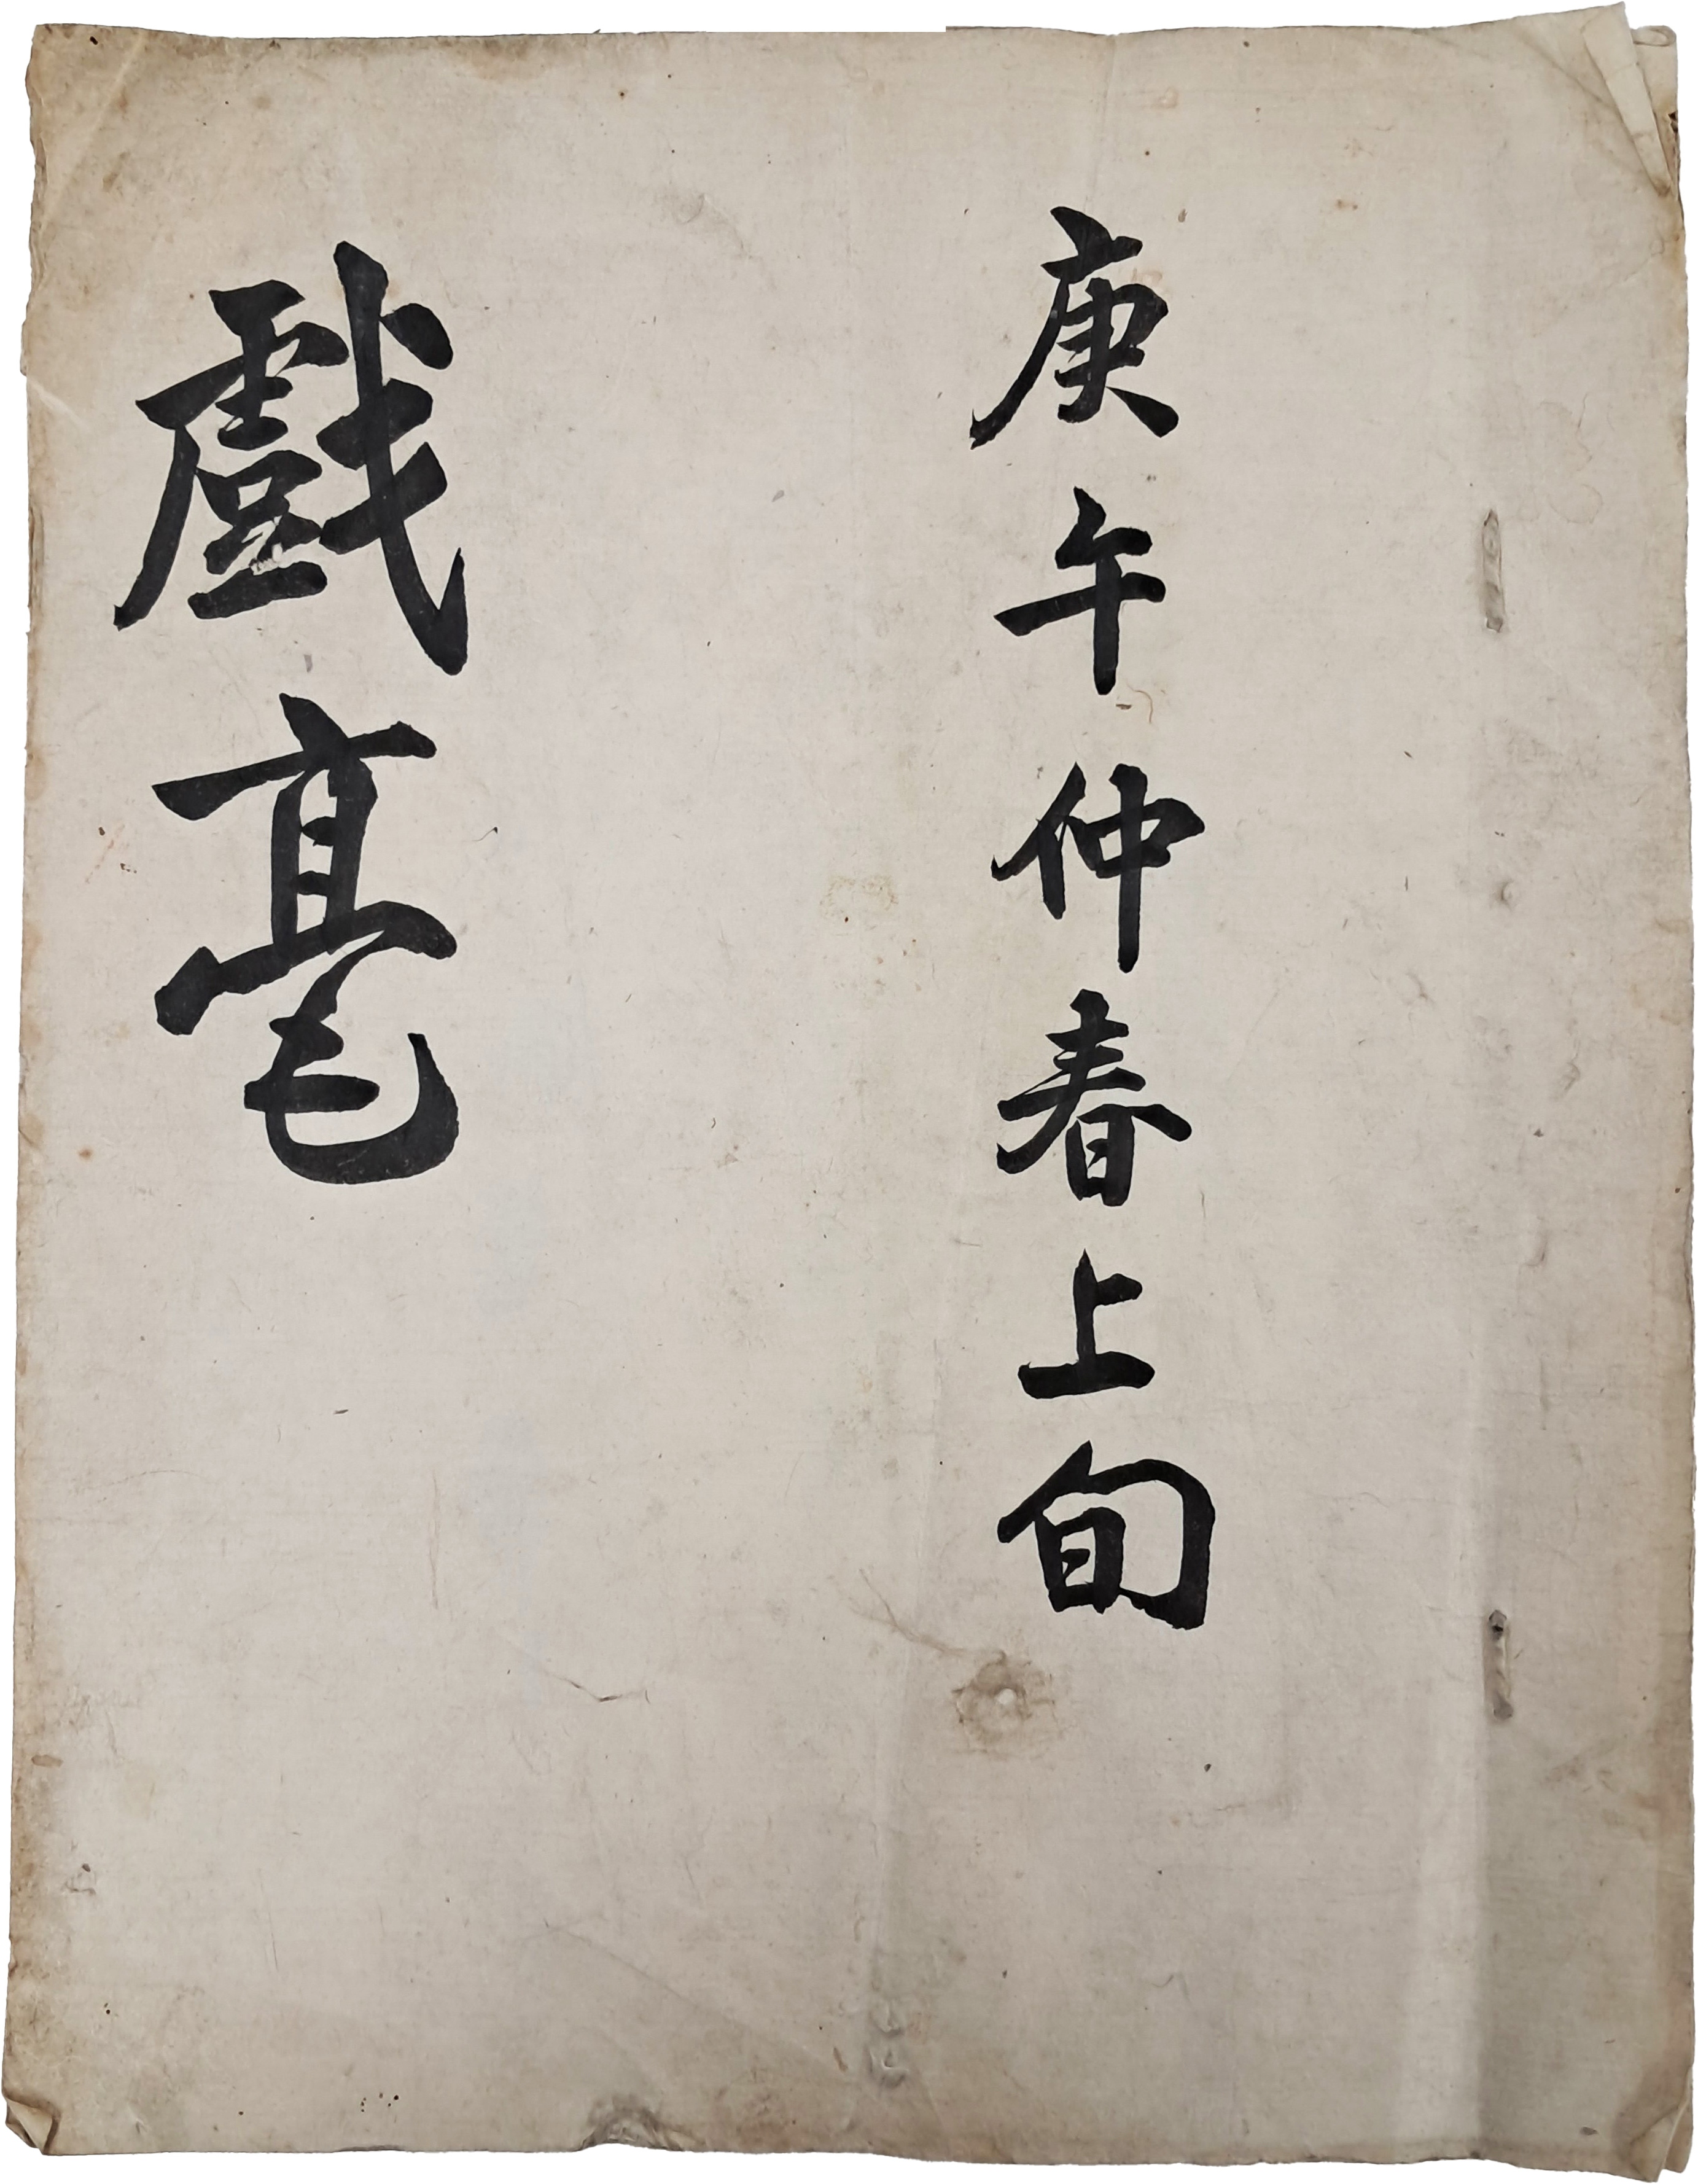 庚午仲春上旬
戲毫